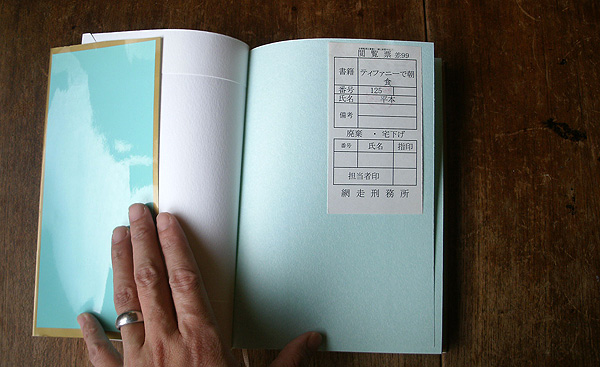 閲覧票 差99
書籍 ティファニーで朝食
番号 125
氏名 平本
備考
廃棄・宅下げ
番号 氏名 指印
担当者印
網走刑務所